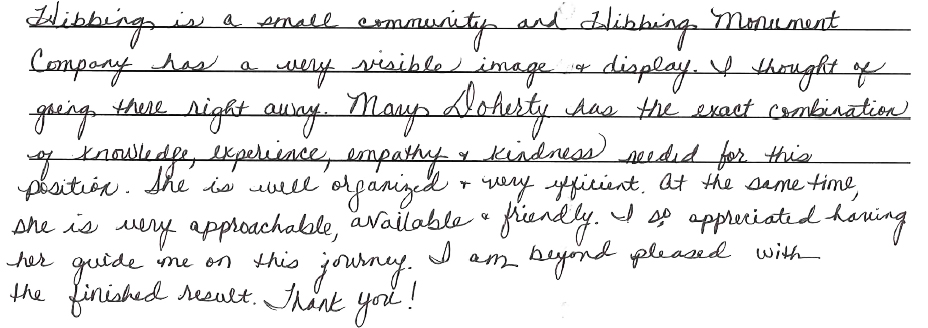 Hibbing is a small community and Hibbing Monument
Company has a very visible image & display. I thought of
going there right away. Mary Doherty has the exact combination
of knowledge, experience, empathy & kindness needed for this
position. She is well organized & very efficient. At the same time,
she is very approachable, available & friendly. I so appreciated having
her guide me on this journey. I am beyond pleased with
the finished result. Thank you!